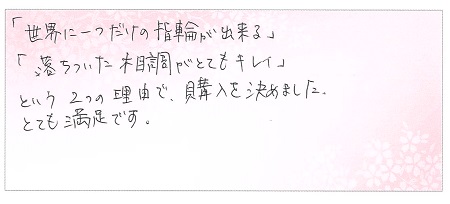 「世界に一つだけの指輪が出来る」
「落ちついた木目調がとてもキレイ」
という2つの理由で、購入を決めました。
とても満足です。